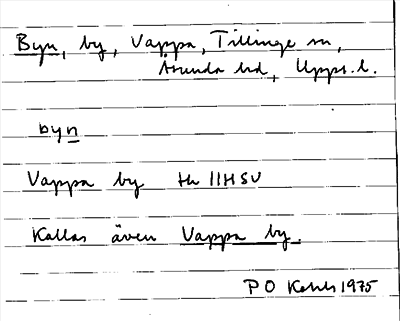 Byn, by, Vappa, Tillinge sn,
Åsunda hd, Upps. l.
byn
Vappa by th 11HSV
Kallas även Vappa by.
P O 1975